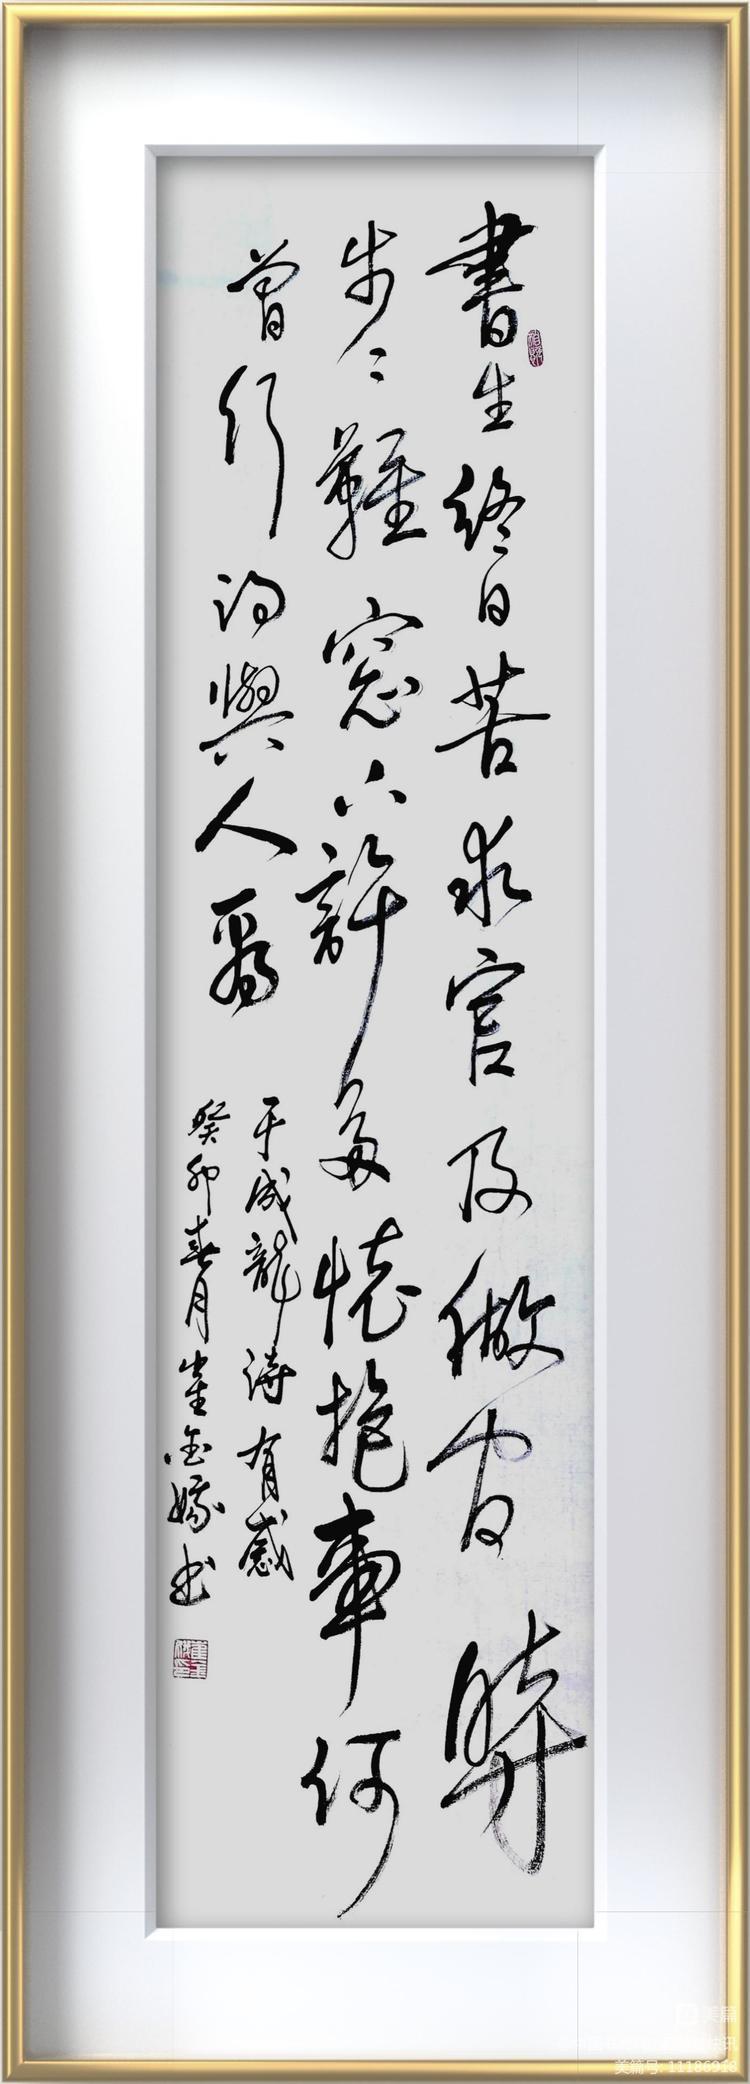 書生終日苦求官及做官時
步步難窓下許多懷抱事何
曾行得與人看
于成龍詩有感
癸卯春月崔金娥书
美篇
美篇号: 11186918